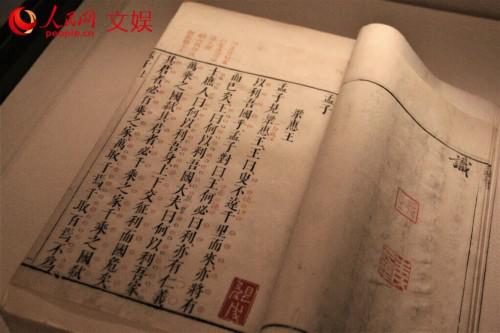 人民网 文娱
people.cn
識
孟子
梁惠王
孟子見梁惠王王曰叟不遠千里而來亦將有
以利吾國乎孟子對曰王何必曰利亦有仁義
而已矣王曰何以利吾國大夫曰何以利吾家
士庶人曰何以利吾身上下交征利而國危矣
萬乘之國弒其君者必千乘之家千乘之國弒
其君者必百乘之家萬取千焉千取百焉不爲